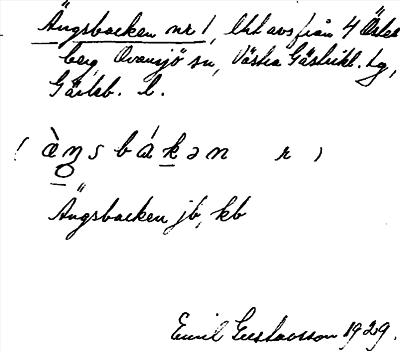 Ängsbacken nr 1, lht avs från 4 Öster
berg Ovansjö sn, Västra Gästrikl. tg,
Gävleb. l.
( ὰŋs bákən r )
Ängsbacken jb, kb
Emil Gustavsson 1929.